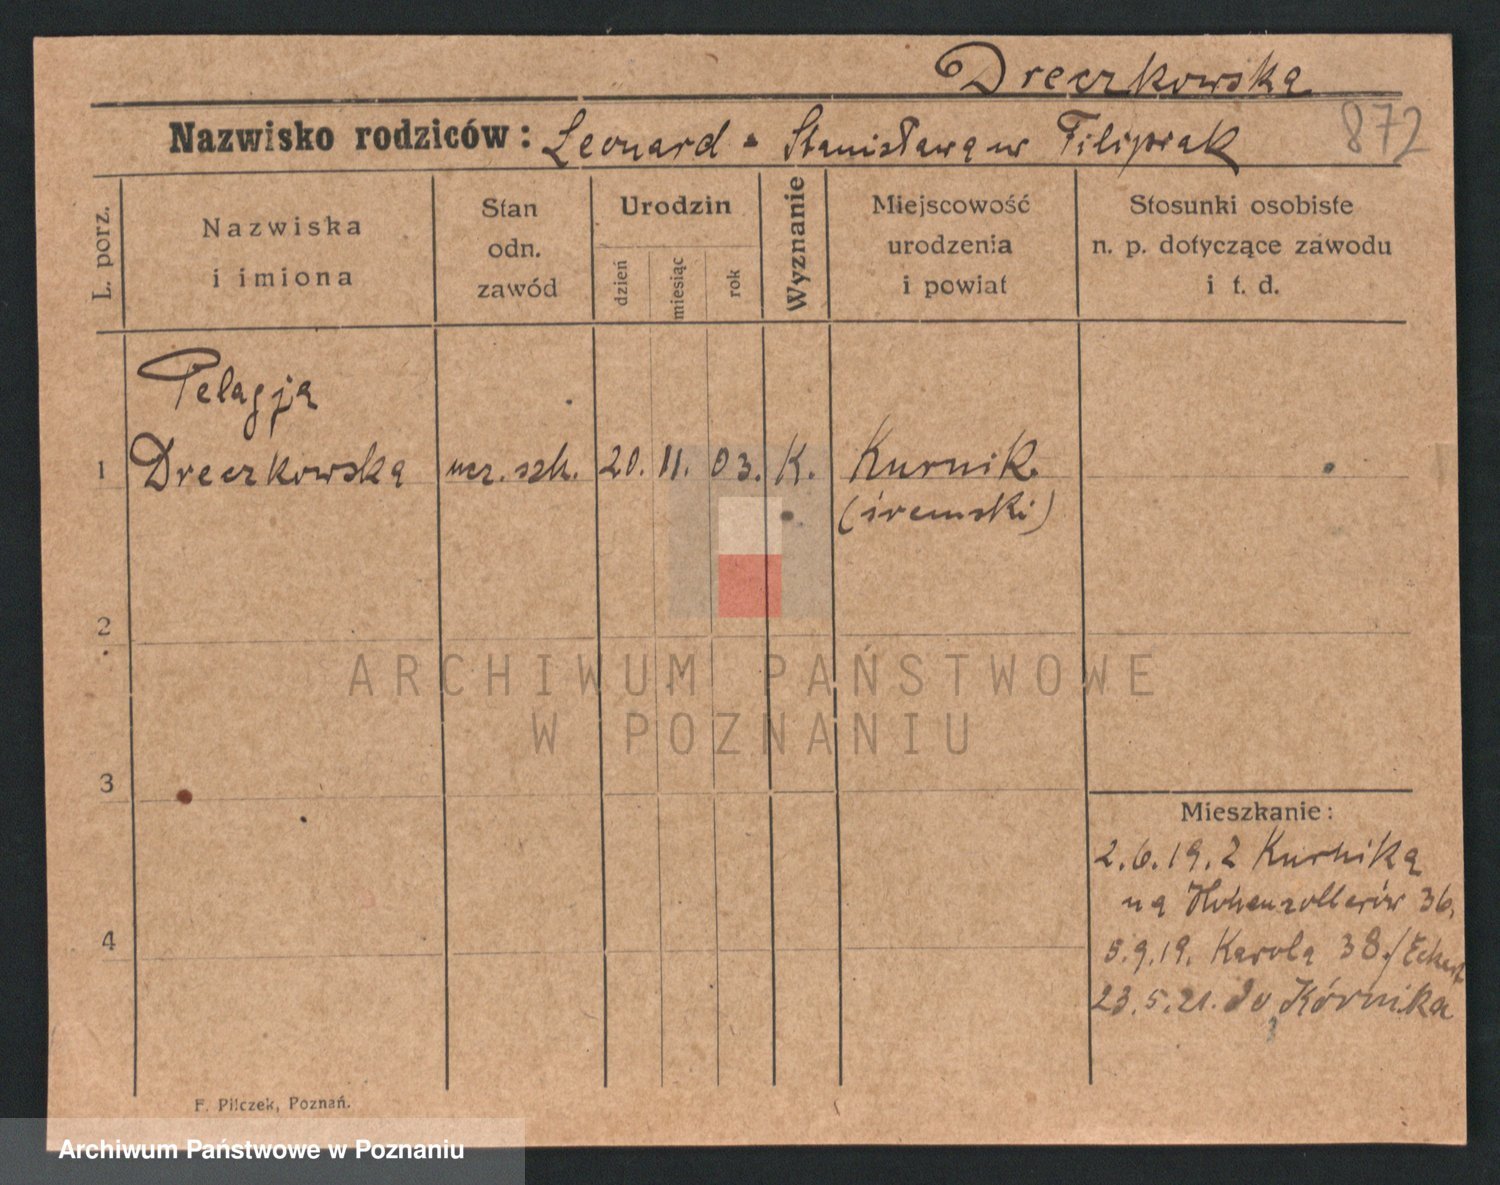 Dreczkowska
Nazwisko rodziców: Leonard - Stanisława w Filipiak 872
L. porz.
Nazwiska
i imiona
Stan
odn.
zawód
Urodzin
dzień
miesiąc
rok
Wyznanie
Miejscowość
urodzenia
i powiat
Stosunki osobiste
n. p. dotyczące zawodu
i t. d.
Pelagja
1 Dreczkowska ucz. szk. 20. 11. 03. K. Kurnik.
(śremski)
2
3
4
Mieszkanie:
2.6.19. z Kurnika
na Hohenzollerów 36.
5.9.19. Karola 38./Eckert
23.5.21. do Kórnika
F. Pilczek, Poznań.
ARCHIWUM PAŃSTWOWE
W POZNANIU
Archiwum Państwowe w Poznaniu